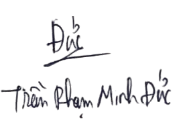 Đức
Trần Phạm Minh Đức